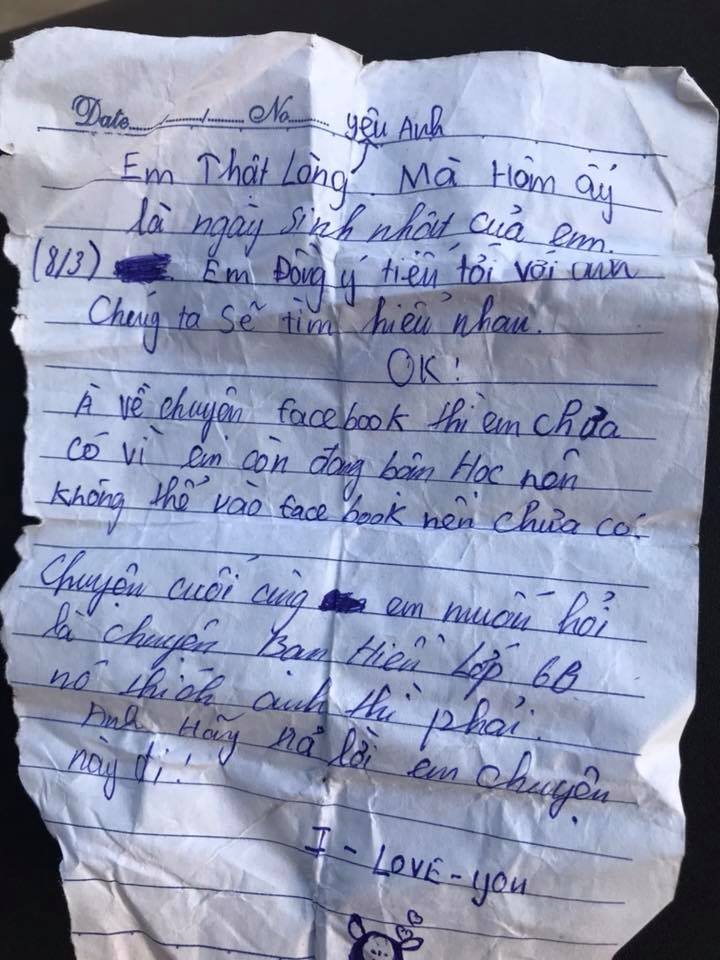 Date...../......./....... No....... yêu Anh
Em Thật Lòng. Mà Hôm ấy
là ngày sinh nhật của em.
(8/3) Em Đồng ý tiến tới với anh
Chúng ta sẽ tìm hiểu nhau.
OK!
À về chuyện facebook thì em chưa
có vì em còn đang bận Học nên
không thể vào face book nên chưa có.
Chuyện cuối cùng em muốn hỏi
là chuyện Bạn Hiền Lớp 6B
nó thích anh thì phải.
Anh Hãy trả lời em chuyện
này đi!
I - LOVE - you